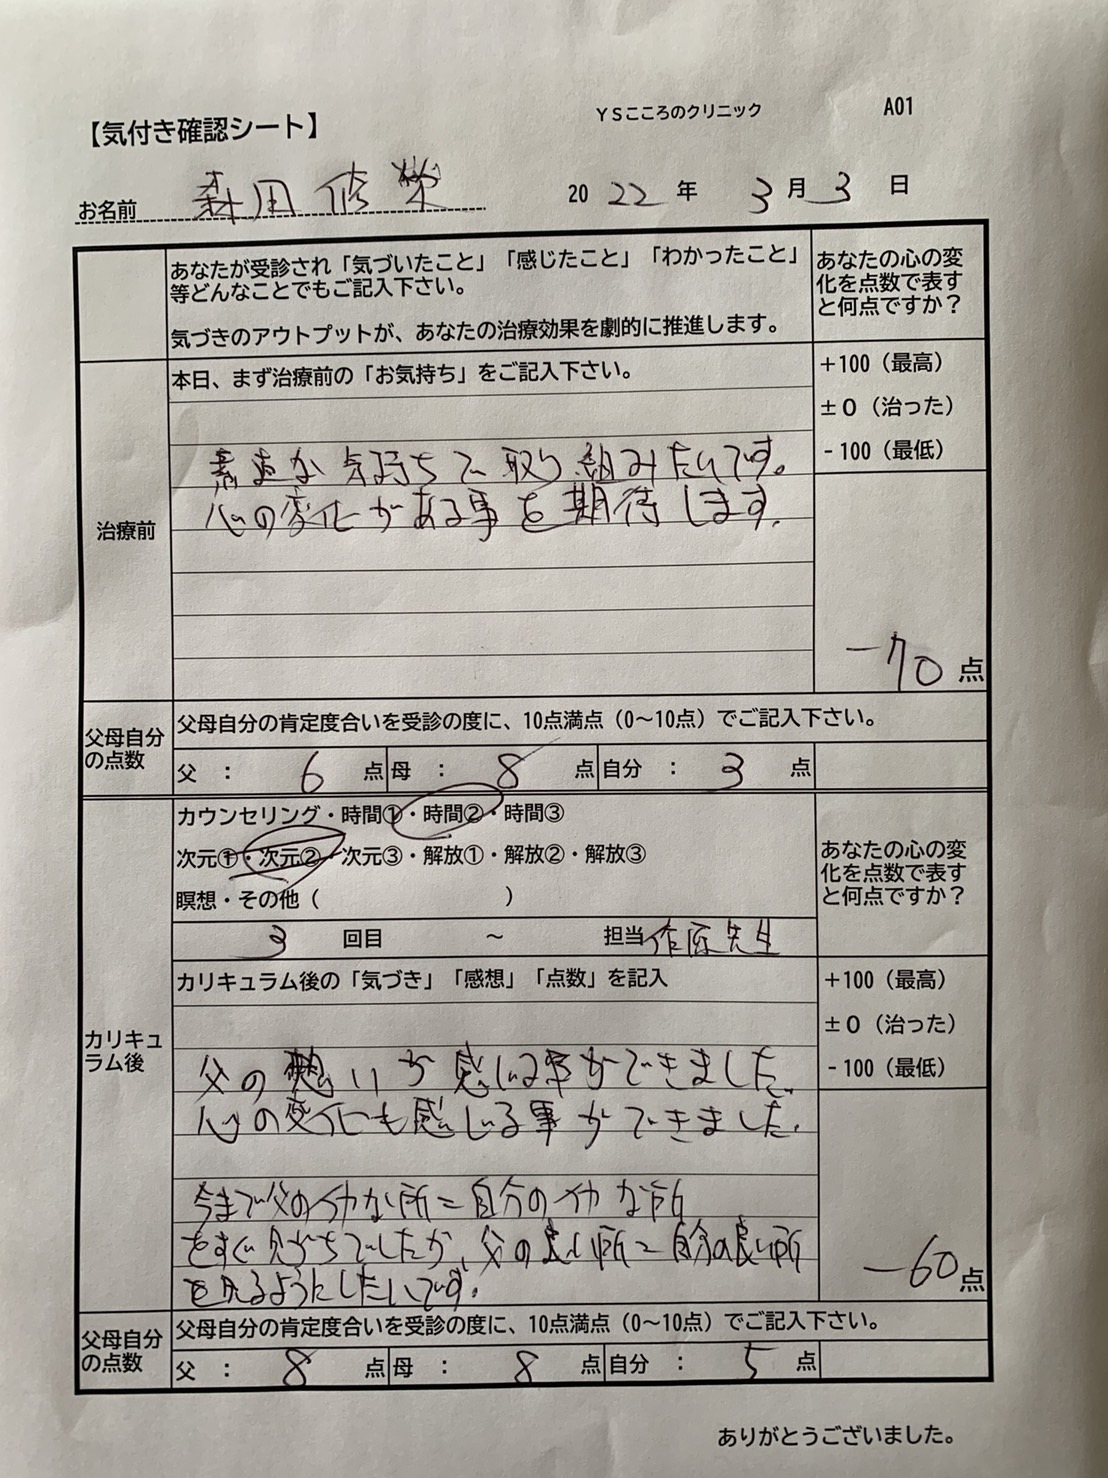 YSこころのクリニック A01
【気付き確認シート】
お名前 森田修榮 2022年 3月3日
あなたが受診され「気づいたこと」「感じたこと」「わかったこと」
等どんなことでもご記入下さい。
気づきのアウトプットが、あなたの治療効果を劇的に推進します。
あなたの心の変
化を点数で表す
と何点ですか？
治療前
本日、まず治療前の「お気持ち」をご記入下さい。
素直な気持ちで取り組みたいです。
心の変化がある事を期待します。
+100（最高）
±0（治った）
-100（最低）
-70点
父母自分
の点数
父母自分の肯定度合いを受診の度に、10点満点（0～10点）でご記入下さい。
父 ： 6 点 母 ： 8 点 自分 ： 3 点
カリキュ
ラム後
カウンセリング・時間①・時間②・時間③
次元①・次元②・次元③・解放①・解放②・解放③
瞑想・その他（ ）
3 回目 ～ 担当 先生
あなたの心の変
化を点数で表す
と何点ですか？
カリキュラム後の「気づき」「感想」「点数」を記入
父の想いが感じる事ができました。
心の変化にも感じる事ができました。
今まで父の な所＝自分の な所
をすぐ見がちでしたが、父の良い所＝自分の良い所
を見るようにしたいです。
+100（最高）
±0（治った）
-100（最低）
-60点
父母自分
の点数
父母自分の肯定度合いを受診の度に、10点満点（0～10点）でご記入下さい。
父 ： 8 点 母 ： 8 点 自分 ： 5 点
ありがとうございました。